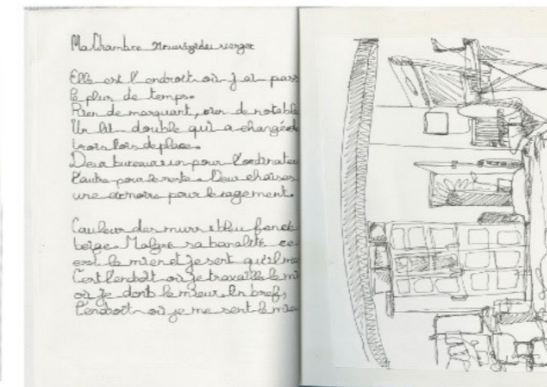 Ma Chambre
Elle est l'endroit où j'ai pass
le plus de temps.
Rien de marquant, rien de notable
Un lit double qui a changé de
trois fois de place.
Deux bureaux un pour l'ordinate
l'autre pour le reste. Deux chaises
une armoire pour le ragement.
Couleur des murs : bleu foncé
beige. Malgré sa banalité ce
est le mien et je sent qu'il me
C'est l'endoit où je travaille le mi
où je dort le mieux. En bref,
l'endroit où je me sent le mieu